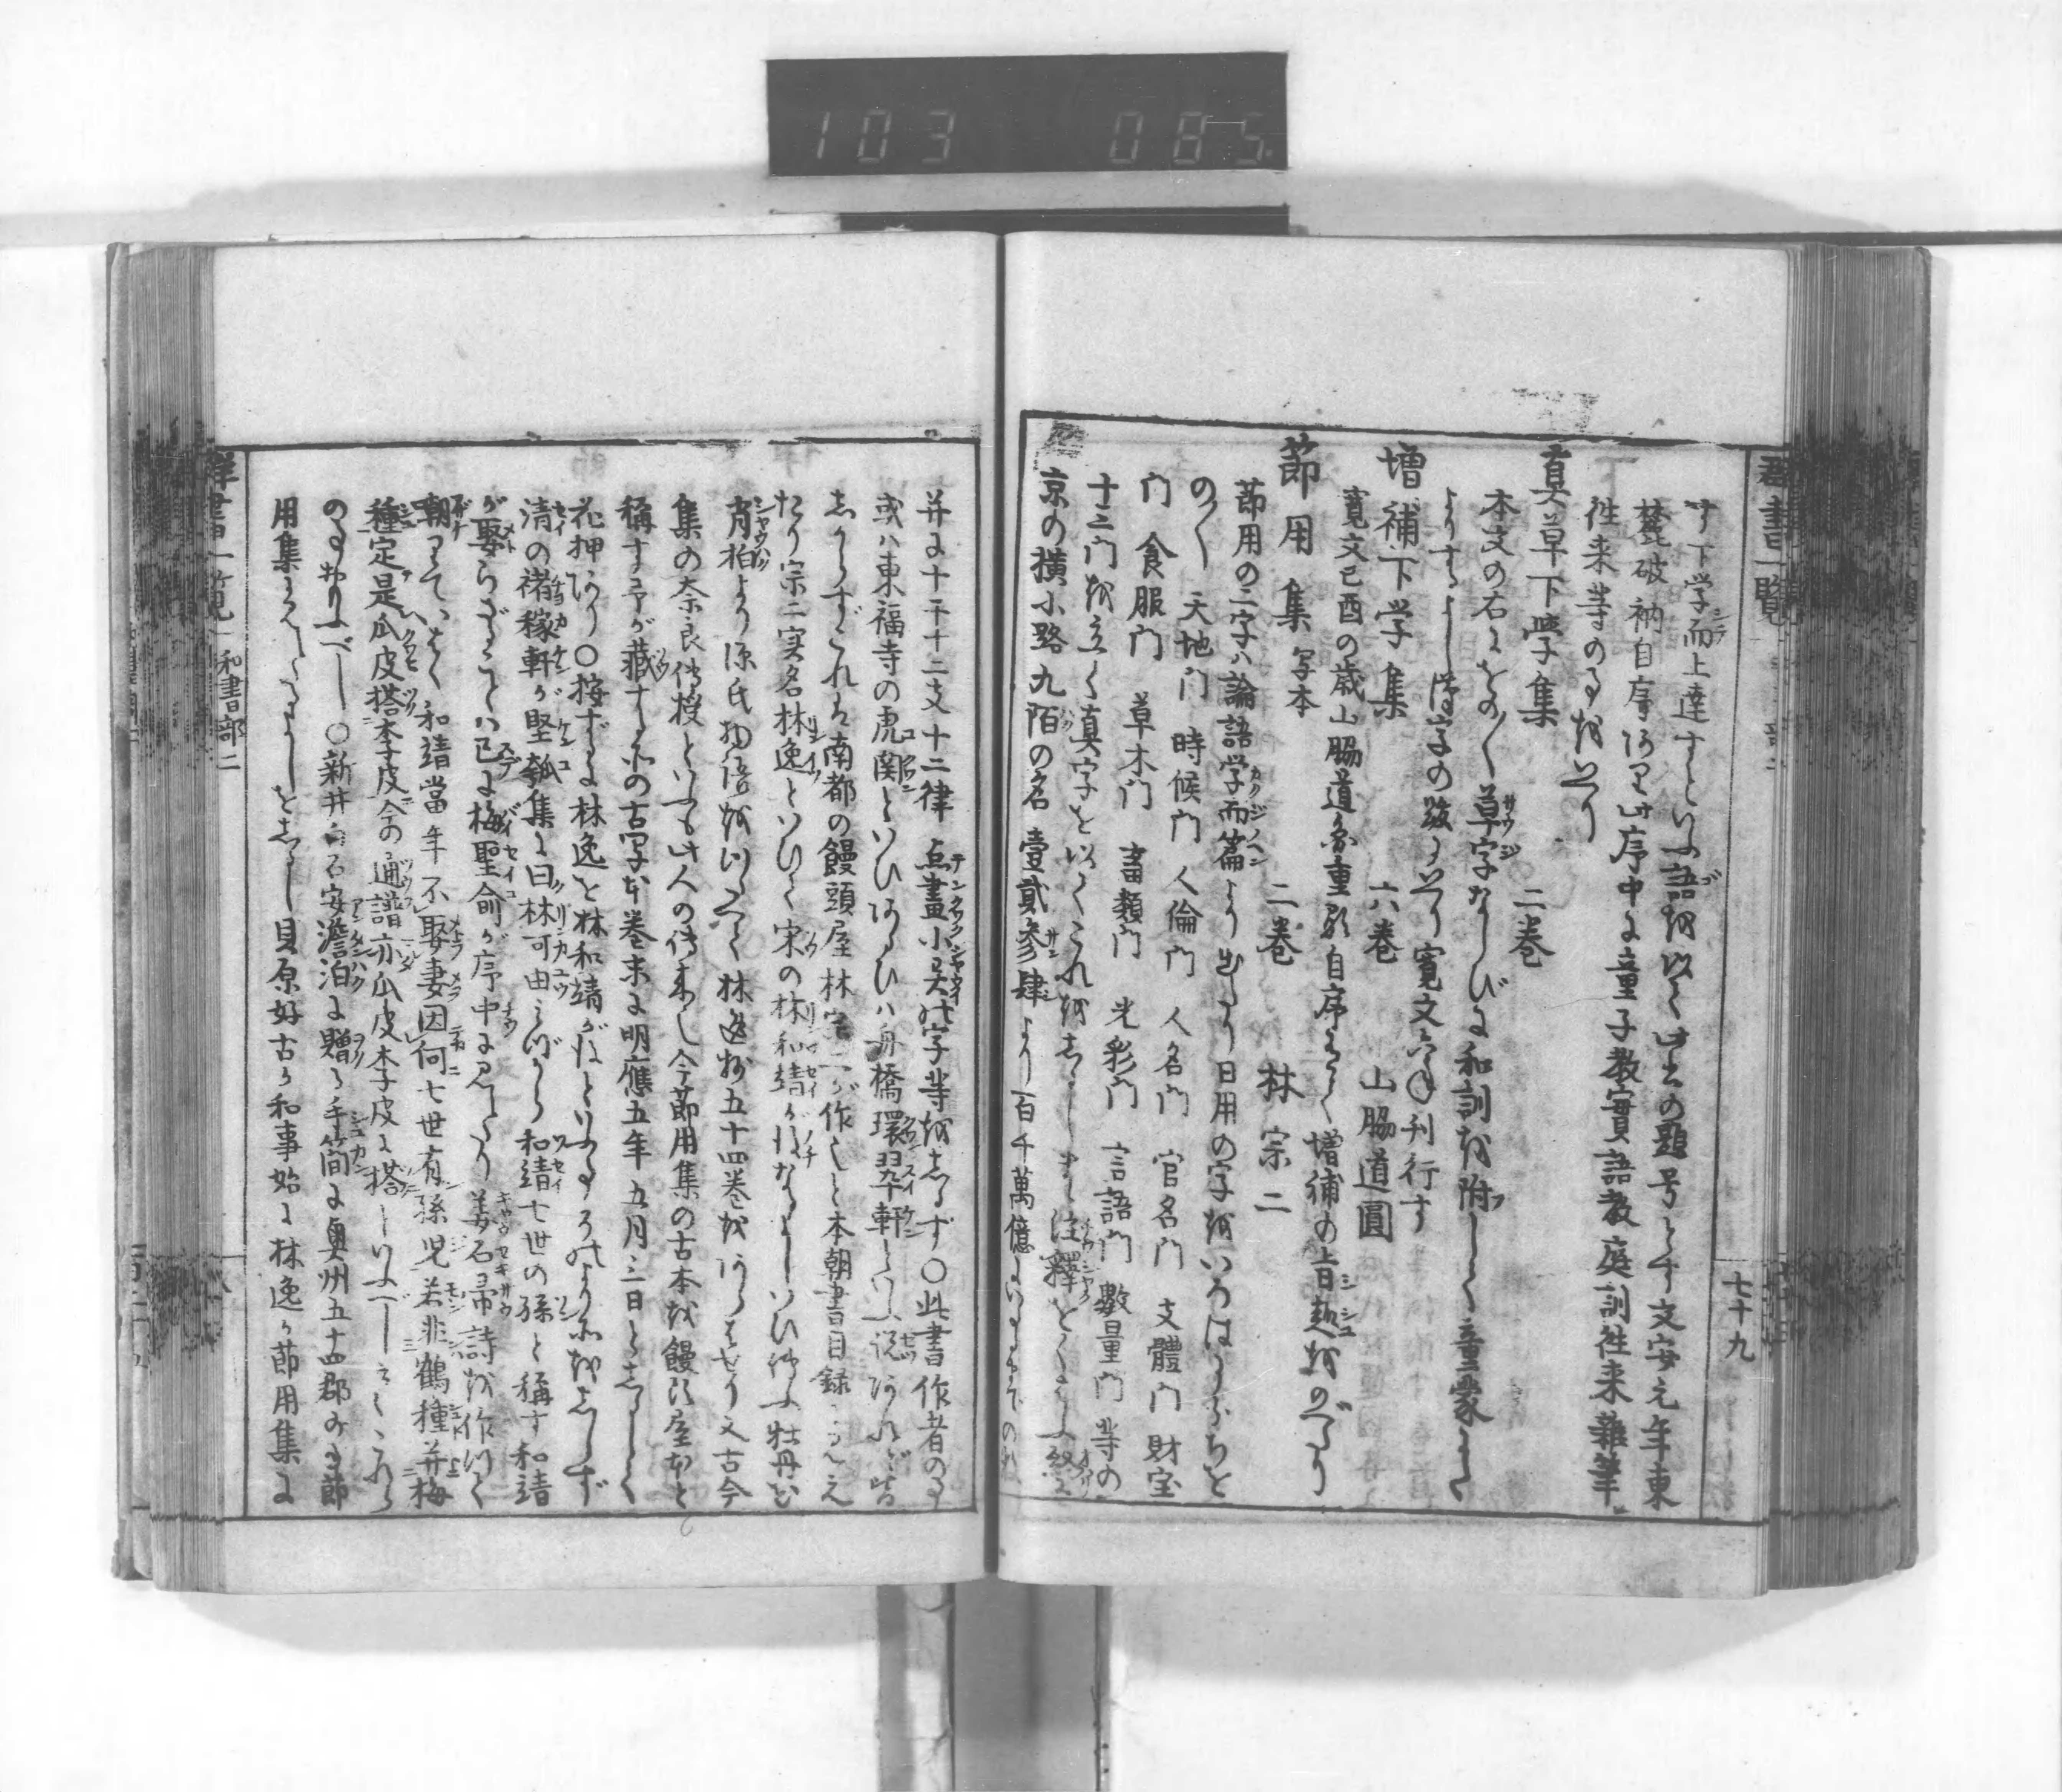 103 085
群書一覧
七十九
す下学而上達すといふ語を以て此書の題号とす文安元年東
麓破衲自序あり此序中に童子教實語教庭訓往来雑筆
往来等の事を載たり
真草下学集 二巻
本文の右にをのく草字ならびに和訓を附して童蒙に
増補下学集 六巻 山脇道圓
寛文己酉の歳山脇道圓重彫自序ありて増補の旨趣をのべたり
節用集 写本 二巻 林宗二
節用の二字ハ論語学而篇より出たり日用の字をいろはにわかちを
のく天地門 時候門 人倫門 人名門 官名門 支體門 財宝
門 食服門 草木門 畜類門 光彩門 言語門 數量門 等の
十三門を立て真字を以てこれをしるし注釋をくはふ
京の横小路九陌の名 壹貳參肆より百千萬億にいたるまでの
并に十干十二支十二律 点畫小異の字等をしるす〇此書作者の事
或ハ東福寺の虎関といひあるひハ舟橋環翠軒といふ説あれど皆
しからずこれは南都の饅頭屋林宗二が作也と本朝書目録に見え
たり宗二実名林逸といひて宋の林和靖が後なるよしいひ伝ふ牡丹花
肖柏より源氏物語を林逸抄五十四巻をあらはせり又古今
集の奈良傳授といふも此人の傳来也今節用集の古本を饅頭屋本と
稱す予が藏する所の古写本巻末に明應五年五月三日としるして
花押あり〇按ずるに林逸を林和靖が後といふ事そのよる所をしらず
清の褚稼軒が堅瓠集に曰林可由みづから和靖七世の孫と稱す和靖
が娶らざることハ已に梅聖俞が序中に見えたり姜石帚詩を作りて
嘲ていはく和靖當年不娶妻因何七世有孫児若非鶴種并梅
種定是瓜皮搭李皮今の通譜亦瓜皮李皮に搭といふべし
の事なるべし〇新井白石安澹泊に贈る手簡に奥州五十四郡の事節
用集に見えたるよしをしるし貝原好古が和事始に林逸が節用集に
群書一覧 和書部二